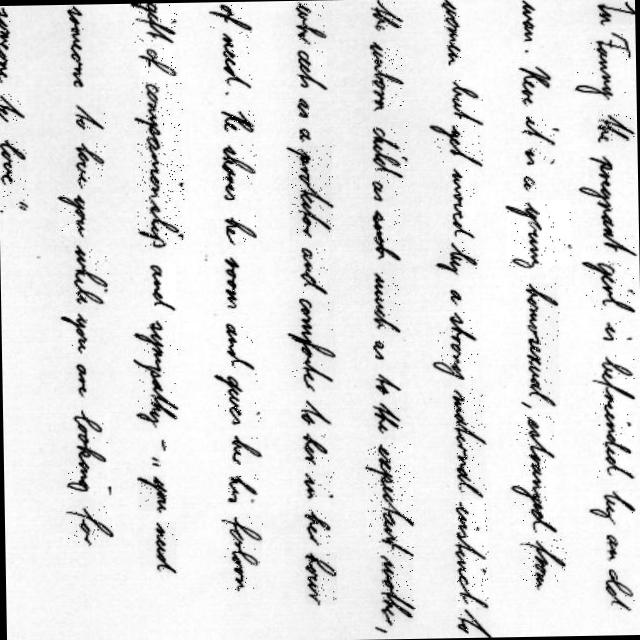 In Fanny the pregnant girl is befriended by an old
man. Here it is a young homosexual, estranged from
women but yet moved by a strong maternal instinct to
the unborn child as much as to the expectant mother,
who acts as a protector and comforter to her in her hour
of need. He shares her room and gives her his
gift of companionship and sympathy - "you need
someone to love you while you are looking for
someone to love."